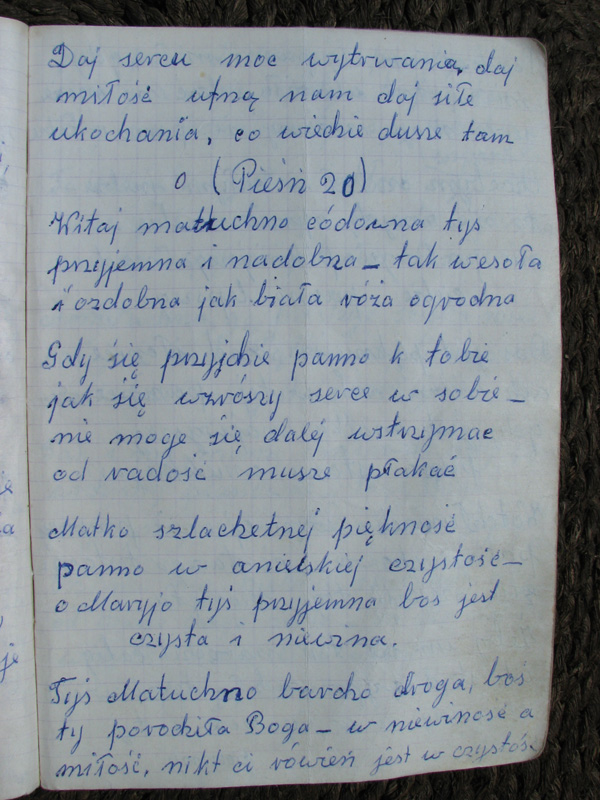 Daj sercu moc wytrwania, daj
miłość ufną nam daj siłe
ukochania, co wiedzie dusze tam
O (Pieśń 20)
Witaj matuchno códowna tyś
przyjemna i nadobna – tak wesoła
i ozdobna jak biała róża ogrodna
Gdy się przyjdzie panno k tobie
jak się wzrószy serce w sobie –
nie moge się dalej wstrzymac
od radość musze płakać
Matko szlachetnej piękność
panno w anielskiej czystość –
o Maryjo tyś przyjemna boś jest
czysta i niewina.
Tyś Matuchno bardzo droga, boś
ty porodziła Boga – w niewiność a
miłość, nikt ci rówień jest w czystoś.